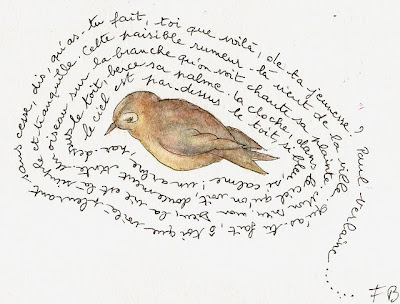 le ciel est par-dessus le toit si bleu, si calme ! un arbre, par-dessus le toit, berce sa palme. La cloche, dans le ciel qu'on voit doucement tinte. un oiseau sur la branche qu'on voit chante sa plainte. mon dieu, mon dieu, la vie est là simple et tranquille. Cette paisible rumeur-là vient de la ville. qu'as-tu fait, ô toi que voilà pleurant sans cesse, dis, qu'as-tu fait, toi que voilà, de ta jeunesse ? Paul Verlaine......
F B